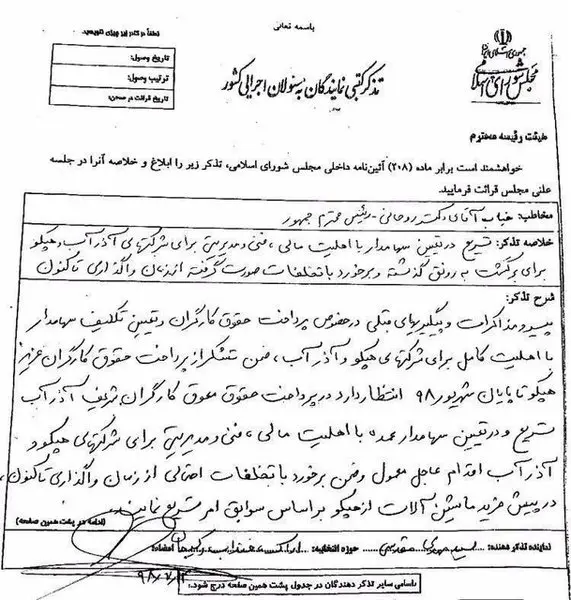 باسمه تعالی
لطفاً در کادر زیر چیزی ننویسید.
تاریخ وصول:
ترتیب وصول:
تاریخ قرائت در صحن:
جمهوری اسلامی ایران
مجلس شورای اسلامی
تذکر کتبی نمایندگان به مسئولان اجرایی کشور
هیئت رئیسه محترم
خواهشمند است برابر ماده (۲۰۸) آئین‌نامه داخلی مجلس شورای اسلامی، تذکر زیر را ابلاغ و خلاصه آنرا در جلسه
علنی مجلس قرائت فرمایید.
مخاطب: جناب آقای دکتر روحانی - رئیس محترم جمهور
خلاصه تذکر: تسریع در تعیین سهامدار با اهلیت مالی، فنی و مدیریتی برای شرکتهای آذرآب و هپکو
برای برگشت به رونق گذشته و برخورد با تخلفات صورت گرفته از زمان واگذاری تاکنون
شرح تذکر:
پیرو مذاکرات و پیگیریهای قبلی در خصوص پرداخت حقوق کارگران و تعیین تکلیف سهامدار
با اهلیت کامل برای شرکتهای هپکو و آذرآب، ضمن تشکر از پرداخت حقوق کارگران عزیز
هپکو تا پایان شهریور ۹۸ انتظار دارد در پرداخت حقوق معوق کارگران شریف آذرآب
تسریع و در تعیین سهامدار عمده با اهلیت مالی، فنی و مدیریتی برای شرکتهای هپکو و
آذرآب اقدام عاجل معمول و ضمن برخورد با تخلفات احتمالی از زمان واگذاری تاکنون،
در پیش خرید ماشین آلات از هپکو بر اساس سوابق امر تسریع نمایند.
(ادامه در پشت همین صفحه)
نماینده تذکر دهنده: سید مهدی مقدسی حوزه انتخابیه: اراک امضاء:
۹۸/۷/
(اسامی سایر تذکر دهندگان در جدول پشت همین صفحه درج شود.)